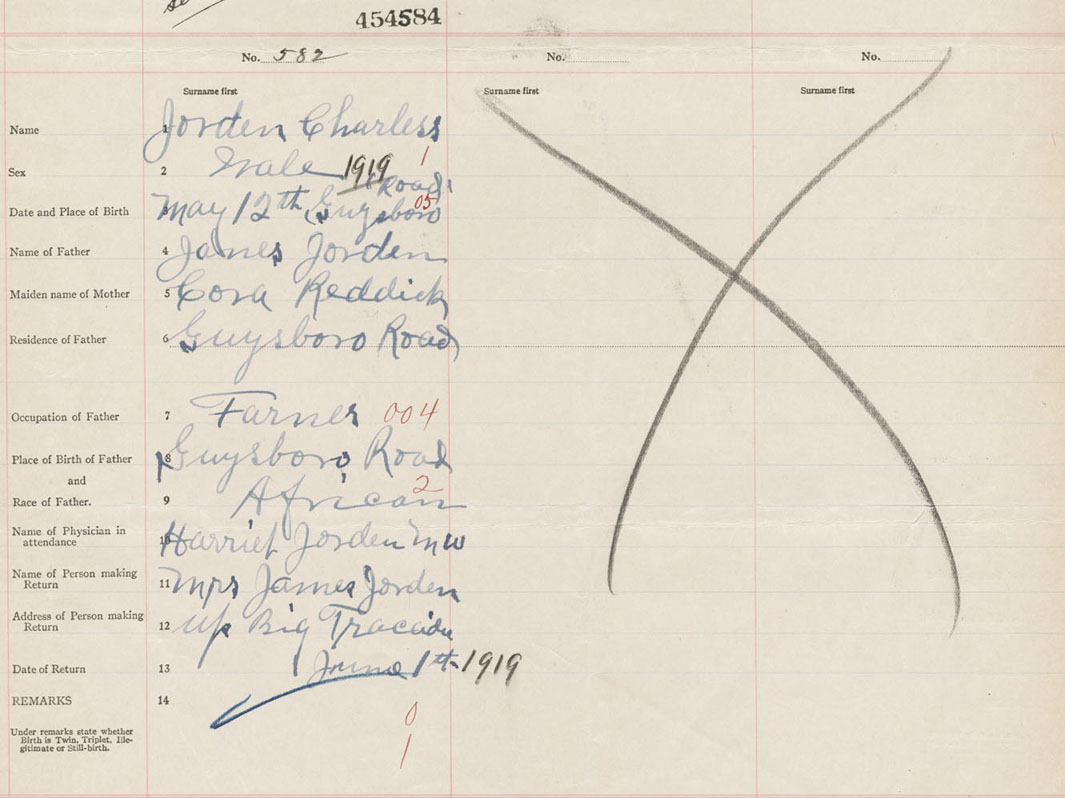 454584
No. 582 No. No.
Surname first Surname first Surname first
Name 1 Jorden Charless
1
Sex 2 Male 1919
Road
Date and Place of Birth 3 May 12th Guysboro 05
Name of Father 4 James Jorden
Maiden name of Mother 5 Cora Reddick
Residence of Father 6 Guysboro Road
Occupation of Father 7 Farner 004
Place of Birth of Father 8 Guysboro Road
and
2
Race of Father. 9 African
Name of Physician in
attendance 10 Harriet Jorden MW
Name of Person making
Return 11 Mrs James Jorden
Address of Person making
Return 12 Up Big Tracadie
Date of Return 13 June 1st 1919
REMARKS 14
0
Under remarks state whether
Birth is Twin, Triplet, Ille-
gitimate or Still-birth.
1